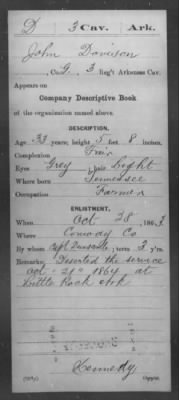 D 3 Cav. Ark.
John Davison
Co. G, 3 Reg't Arkansas Cav.
Appears on
Company Descriptive Book
of the organization named above.
DESCRIPTION.
Age 33 years; height 5 feet 8 inches.
Complexion Fair
Eyes Grey; hair Light
Where born Tennessee
Occupation Farmer
ENLISTMENT.
When Oct 28, 1863
Where Conway Co
By whom Capt; term 3 y'rs.
Remarks: Deserted the service
Oct. 21st 1864 at
Little Rock Ark
Kennedy
Copyist.